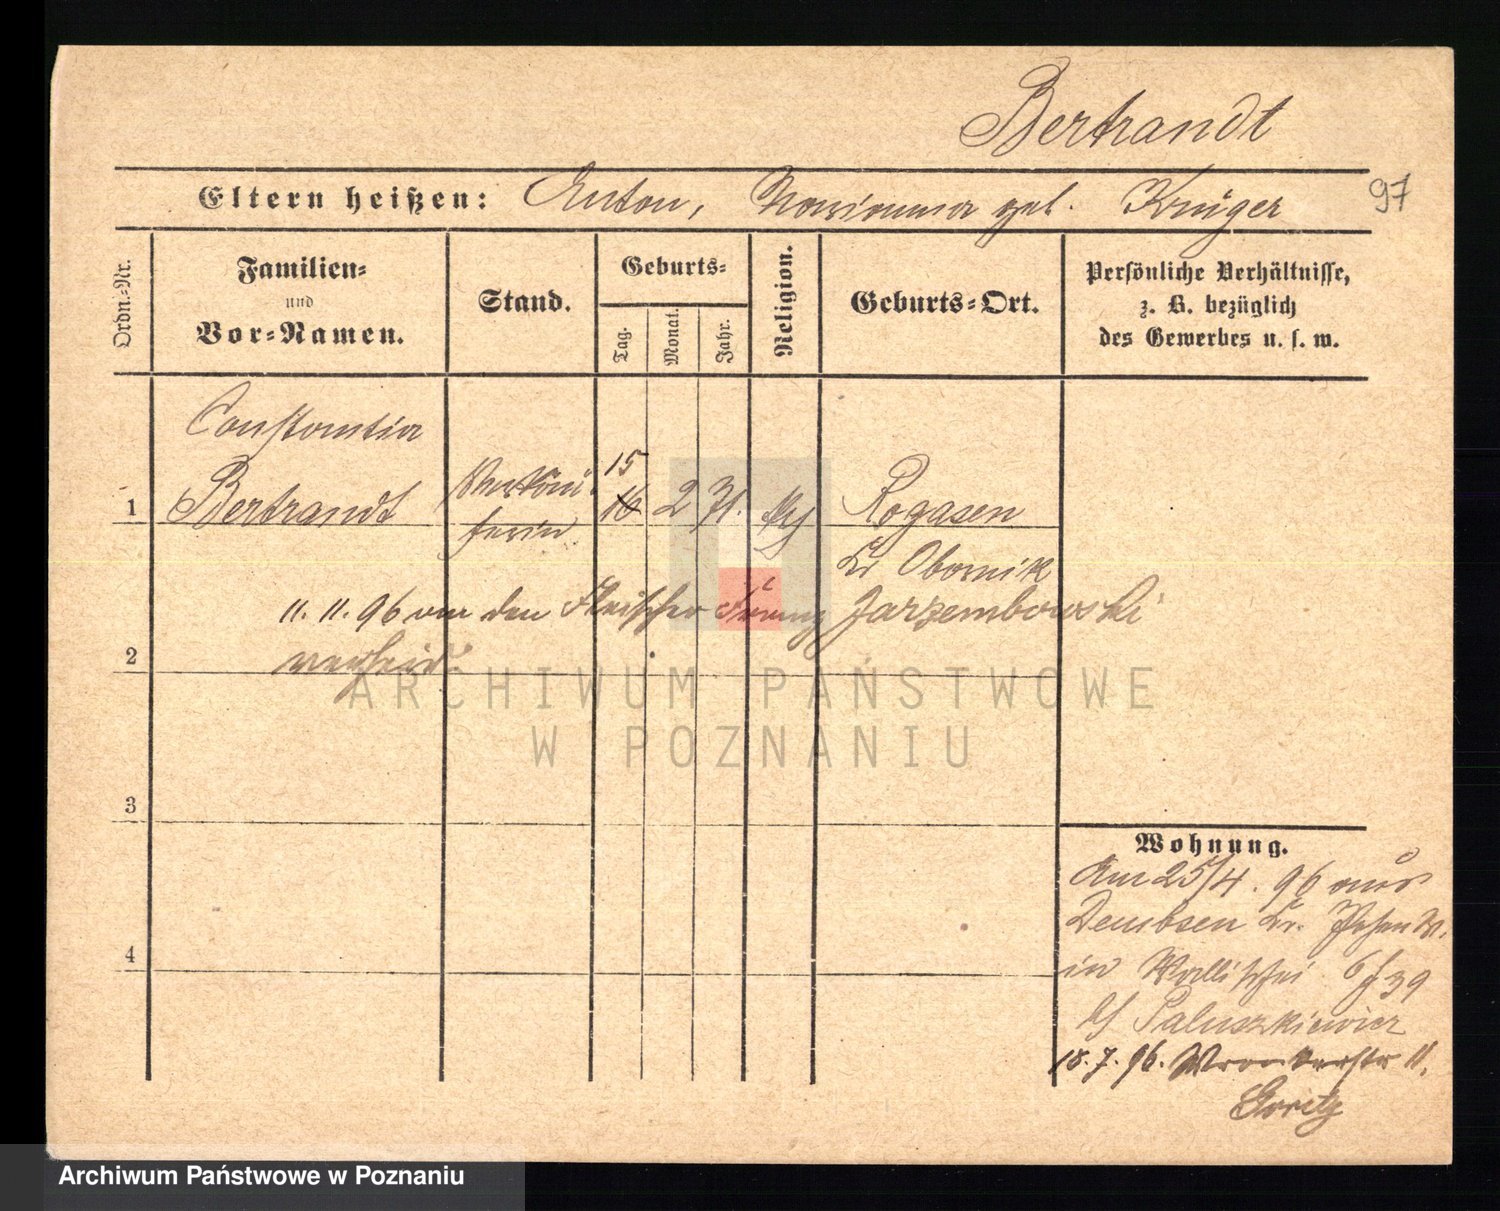 Bertrandt
Eltern heißen: Anton, Marianna geb. Krüger
97
Ordn.-Nr.
Familien-
und
Vor-Namen.
Stand.
Geburts-
Tag.
Monat.
Jahr.
Religion.
Geburts-Ort.
Persönliche Verhältnisse,
z. B. bezüglich
des Gewerbes u. s. w.
Constantia
1 Bertrandt Verkäu-
ferin
15
16 2 71. kth Rogasen
Kr Obornik
11. 11. 96 an den Fleischer Franz Jarzembowski
2 verheir.
3
4
Wohnung.
Am 25/4. 96 aus
Dembsen Kr. Posen W.
in Wallischei 6/39
b/ Paluszkiewicz
18. 7. 96. Wronkerstr 11.
Goritz
ARCHIWUM PAŃSTWOWE
W POZNANIU
Archiwum Państwowe w Poznaniu